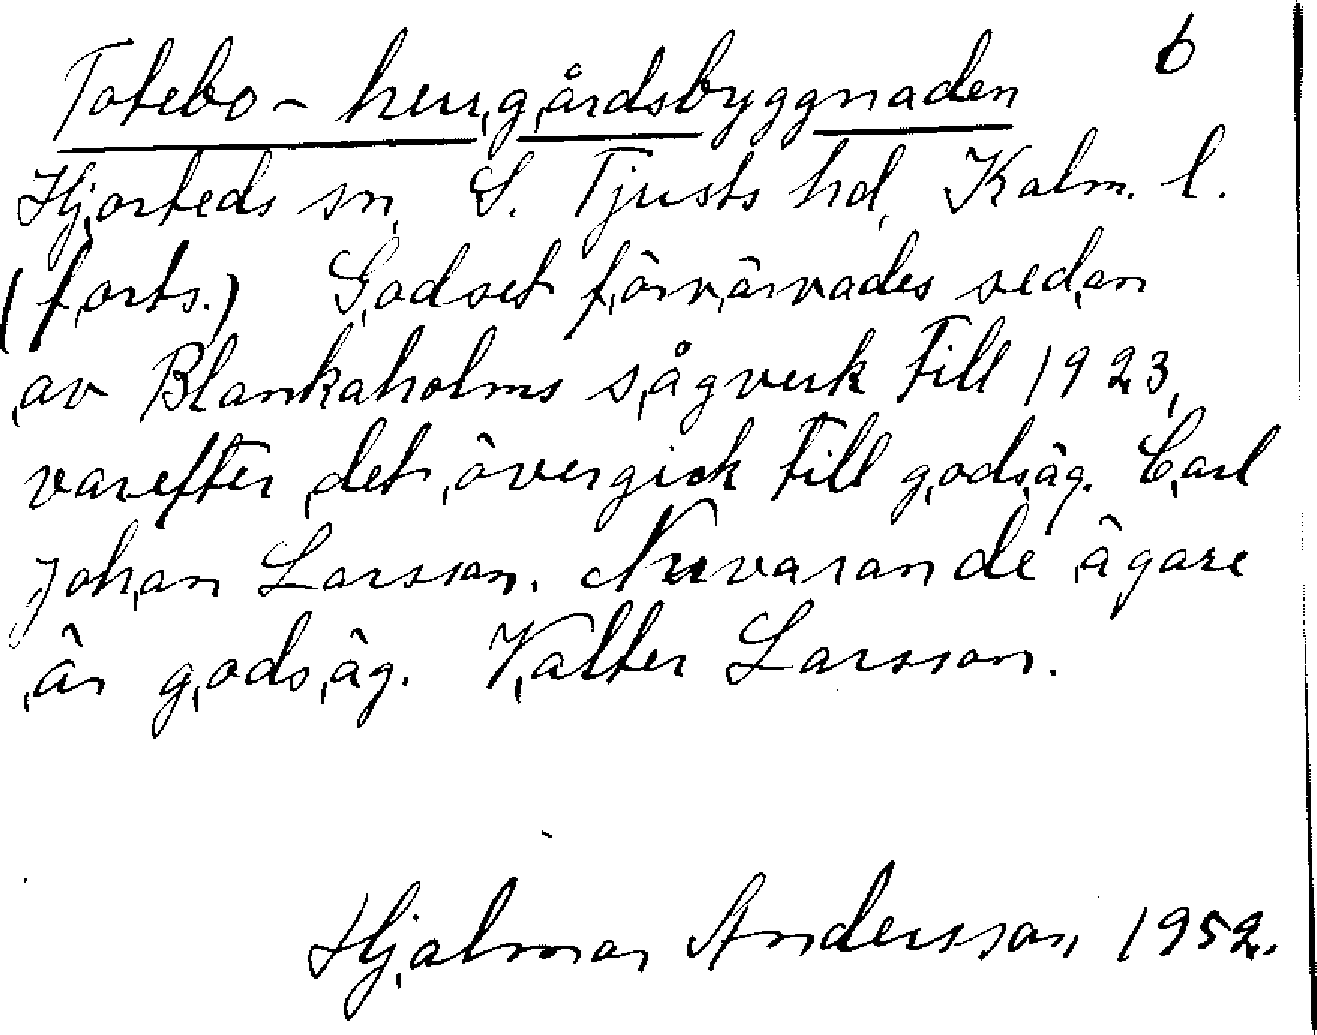 6
Totebo - herrgårdsbyggnaden
Hjorteds sn, S. Tjusts hd, Kalm. l.
(forts.) Godset förvärvades sedan
av Blankaholms sågverk till 1923,
varefter det övergick till godsäg. Carl
Johan Larsson. Nuvarande ägare
är godsäg. Valter Larsson.
Hjalmar Andersson 1952.